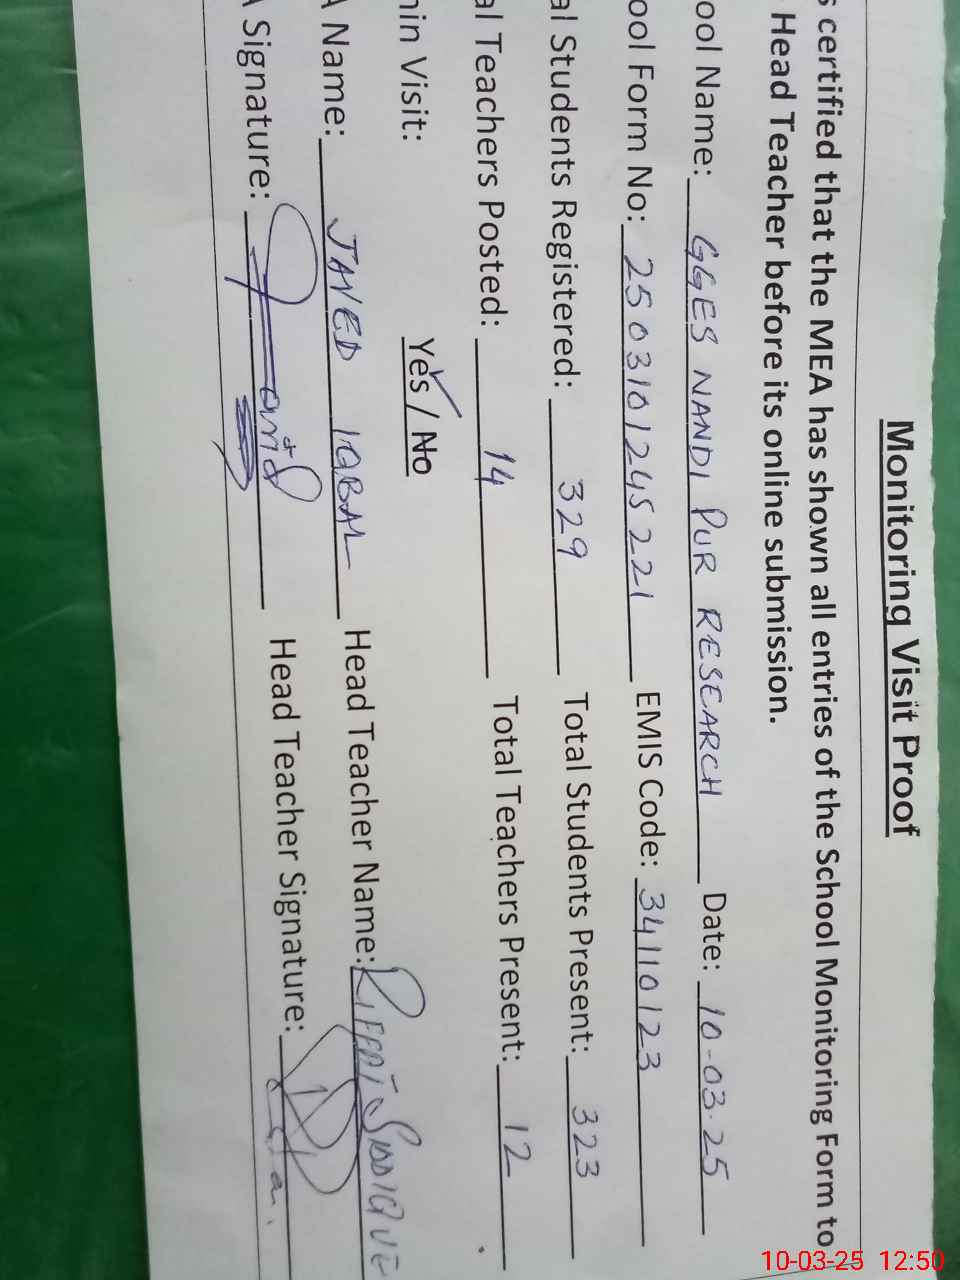 Monitoring Visit Proof
s certified that the MEA has shown all entries of the School Monitoring Form to
Head Teacher before its online submission.
ool Name: GGES NANDI PUR RESEARCH Date: 10-03-25
ool Form No: 2503101245221 EMIS Code: 34110123
al Students Registered: 329 Total Students Present: 323
al Teachers Posted: 14 Total Teachers Present: 12
min Visit: Yes / No
A Name: JAVED IQBAL Head Teacher Name: Riffat SIDDIQUE
A Signature: Javid Head Teacher Signature:
10-03-25 12:50